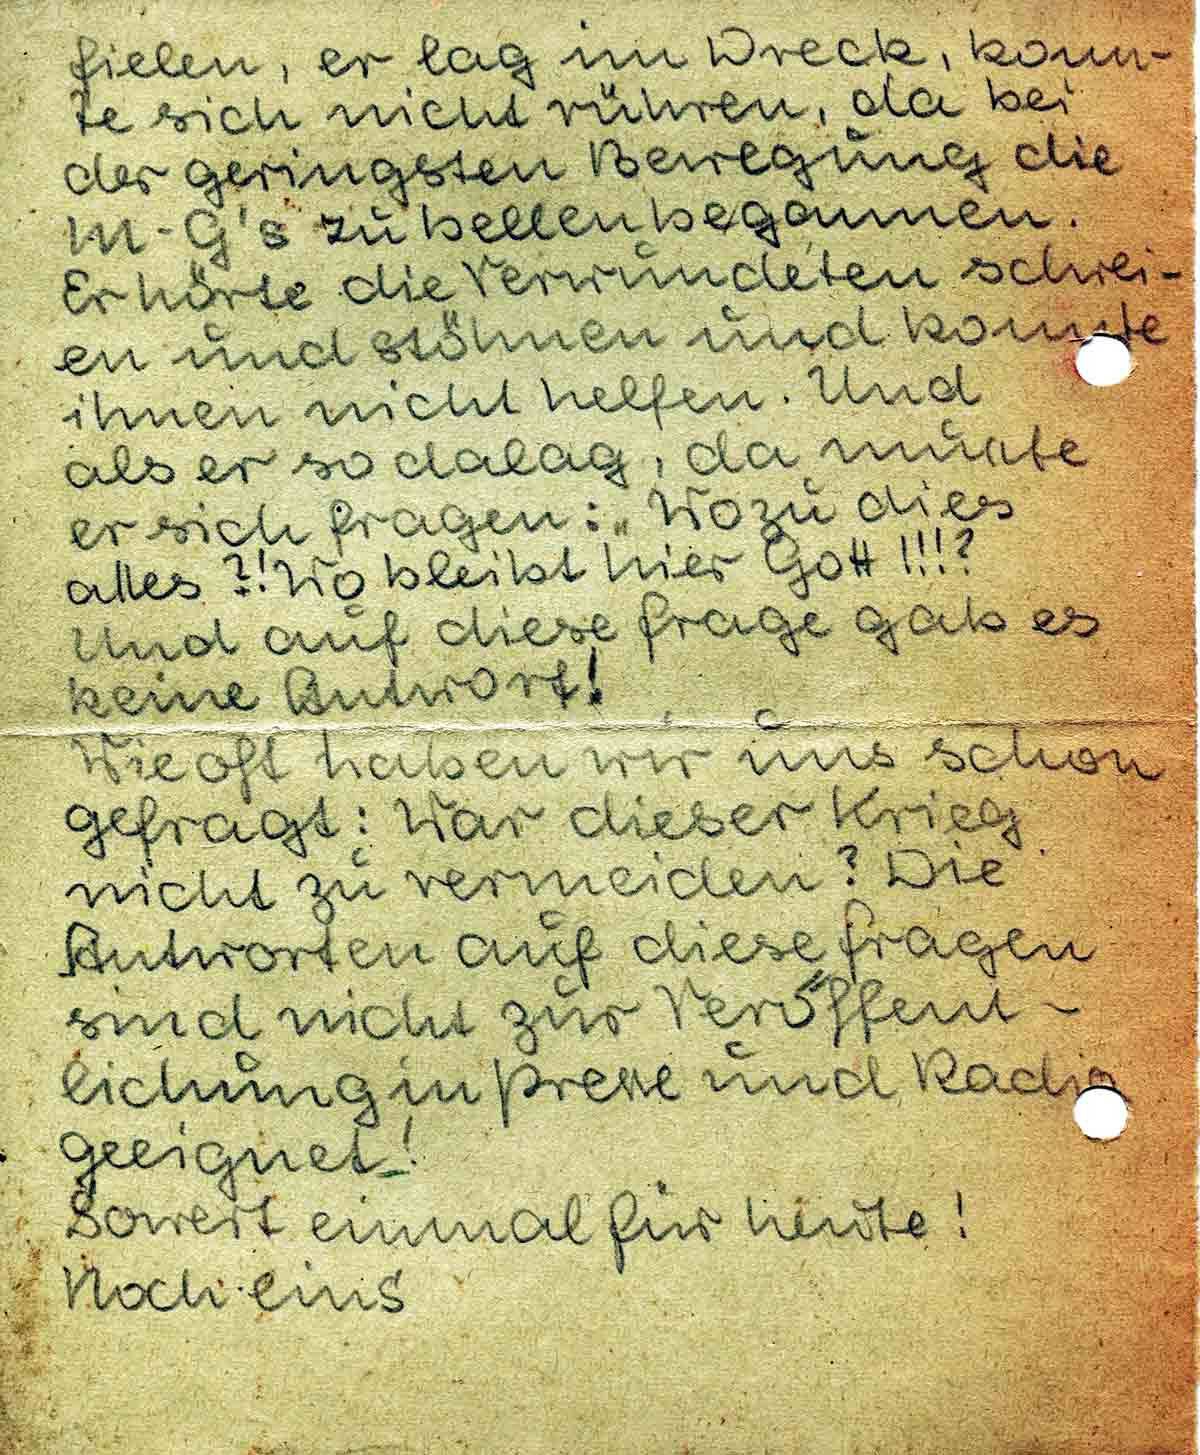 fielen, er lag im Dreck, konn-
te sich nicht rühren, da bei
der geringsten Bewegung die
M-G's zu bellen begannen.
Er hörte die Verwundeten schrei-
en und stöhnen und konnte
ihnen nicht helfen. Und
als er so dalag, da mußte
er sich fragen: „Wozu dies
alles?! Wo bleibt hier Gott!!!?
Und auf diese Frage gab es
keine Antwort!
Wie oft haben wir uns schon
gefragt: War dieser Krieg
nicht zu vermeiden? Die
Antworten auf diese Fragen
sind nicht zur Veröffent-
lichung in Presse und Radio
geeignet!
Soweit einmal für heute!
Noch eins